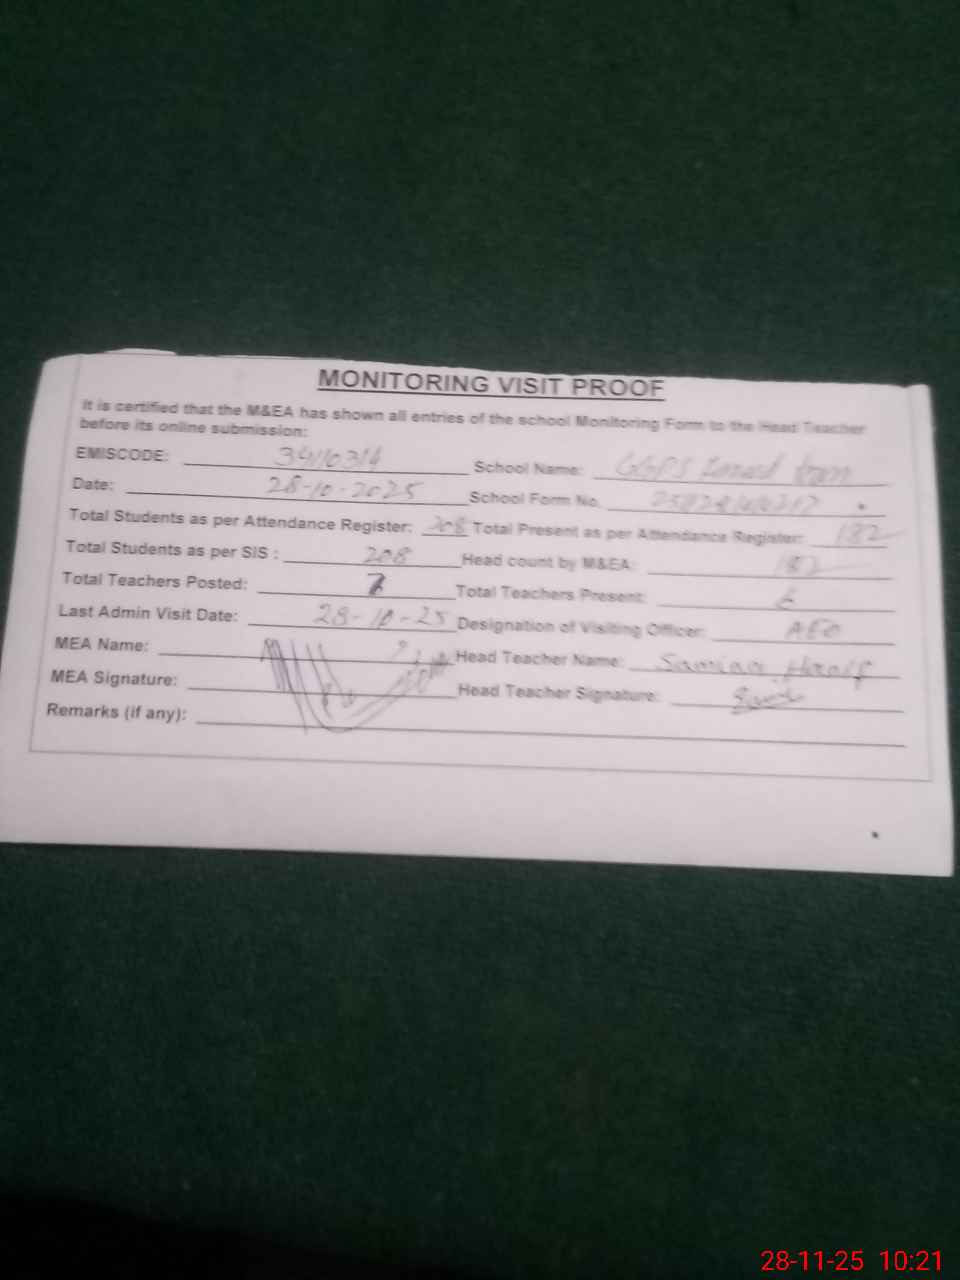 MONITORING VISIT PROOF
It is certified that the M&EA has shown all entries of the school Monitoring Form to the Head Teacher
before its online submission:
EMISCODE: 34110314 School Name: GGPS
Date: 28-10-2025 School Form No.
Total Students as per Attendance Register: 208 Total Present as per Attendance Register: 182
Total Students as per SIS : 208 Head count by M&EA: 182
Total Teachers Posted: 7 Total Teachers Present: 6
Last Admin Visit Date: 28-10-25 Designation of Visiting Officer: AEO
MEA Name: Head Teacher Name: Samina Hanif
MEA Signature: Head Teacher Signature:
Remarks (if any):
28-11-25 10:21